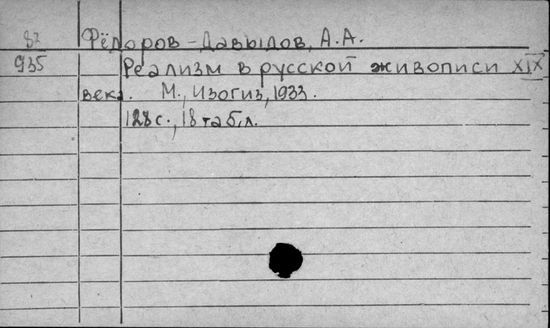 87 Фёдоров-Давыдов, А.А.
935 Реализм в русской живописи XIX
века. М., Изогиз, 1933.
128 с., 18 табл.